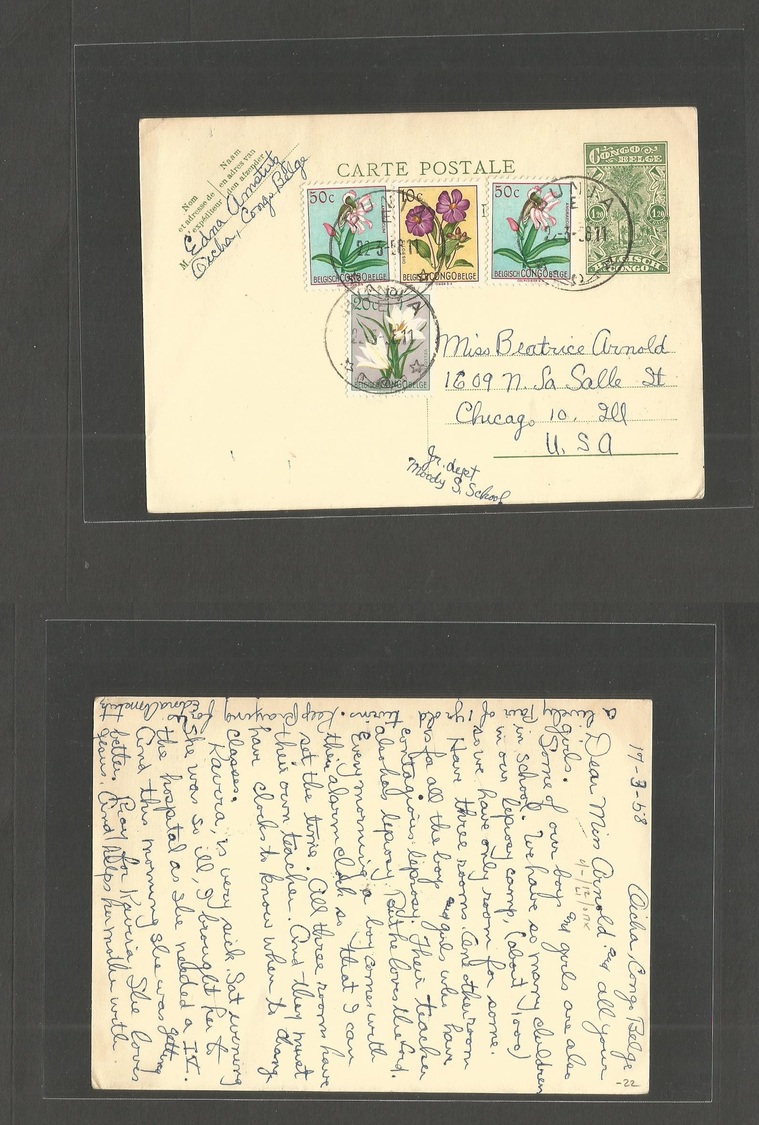 Nom
et adresse de
l'expéditeur
Naam
en adres van
den afzender
M.
Edna Amstutz
Oicha, Congo Belge
CARTE POSTALE
CONGO
BELGE
1.20 1.20
BELGISCH
CONGO
50c
BELGISCH CONGO BELGE
10c
BELGISCH CONGO BELGE
50c
BELGISCH CONGO BELGE
20c
BELGISCH CONGO BELGE
BUNIA
22-3-58 11
Miss Beatrice Arnold
1609 N. La Salle St
Chicago 10, Ill
U. S A
Jr. dept
Moody S. School
17-3-58 Oicha, Congo Belge
Dear Miss Arnold and all your
girls.
Some of our boys and girls are also
in school. We have so many children
in our leprosy camp, (about 1,000)
so we have only room for some.
Have three rooms. Another room
is for all the boys and girls who have
contagious leprosy. Their teacher
also has leprosy. But he loves the Lord.
Every morning a boy comes with
their alarm clock so that I can
set the time. All three rooms have
their own teacher. And they must
have clocks to know when to change
classes.
Kavira, is very sick. Sat evening
She was so ill, I brought her to
the hospital as she needed a I.V.
And this morning she was getting
better. Pray for Kavira, She loves
Jesus. And helps her mother with
a lively pair of 1 yr old twins. Keep praying for
Edna Amstutz
-22